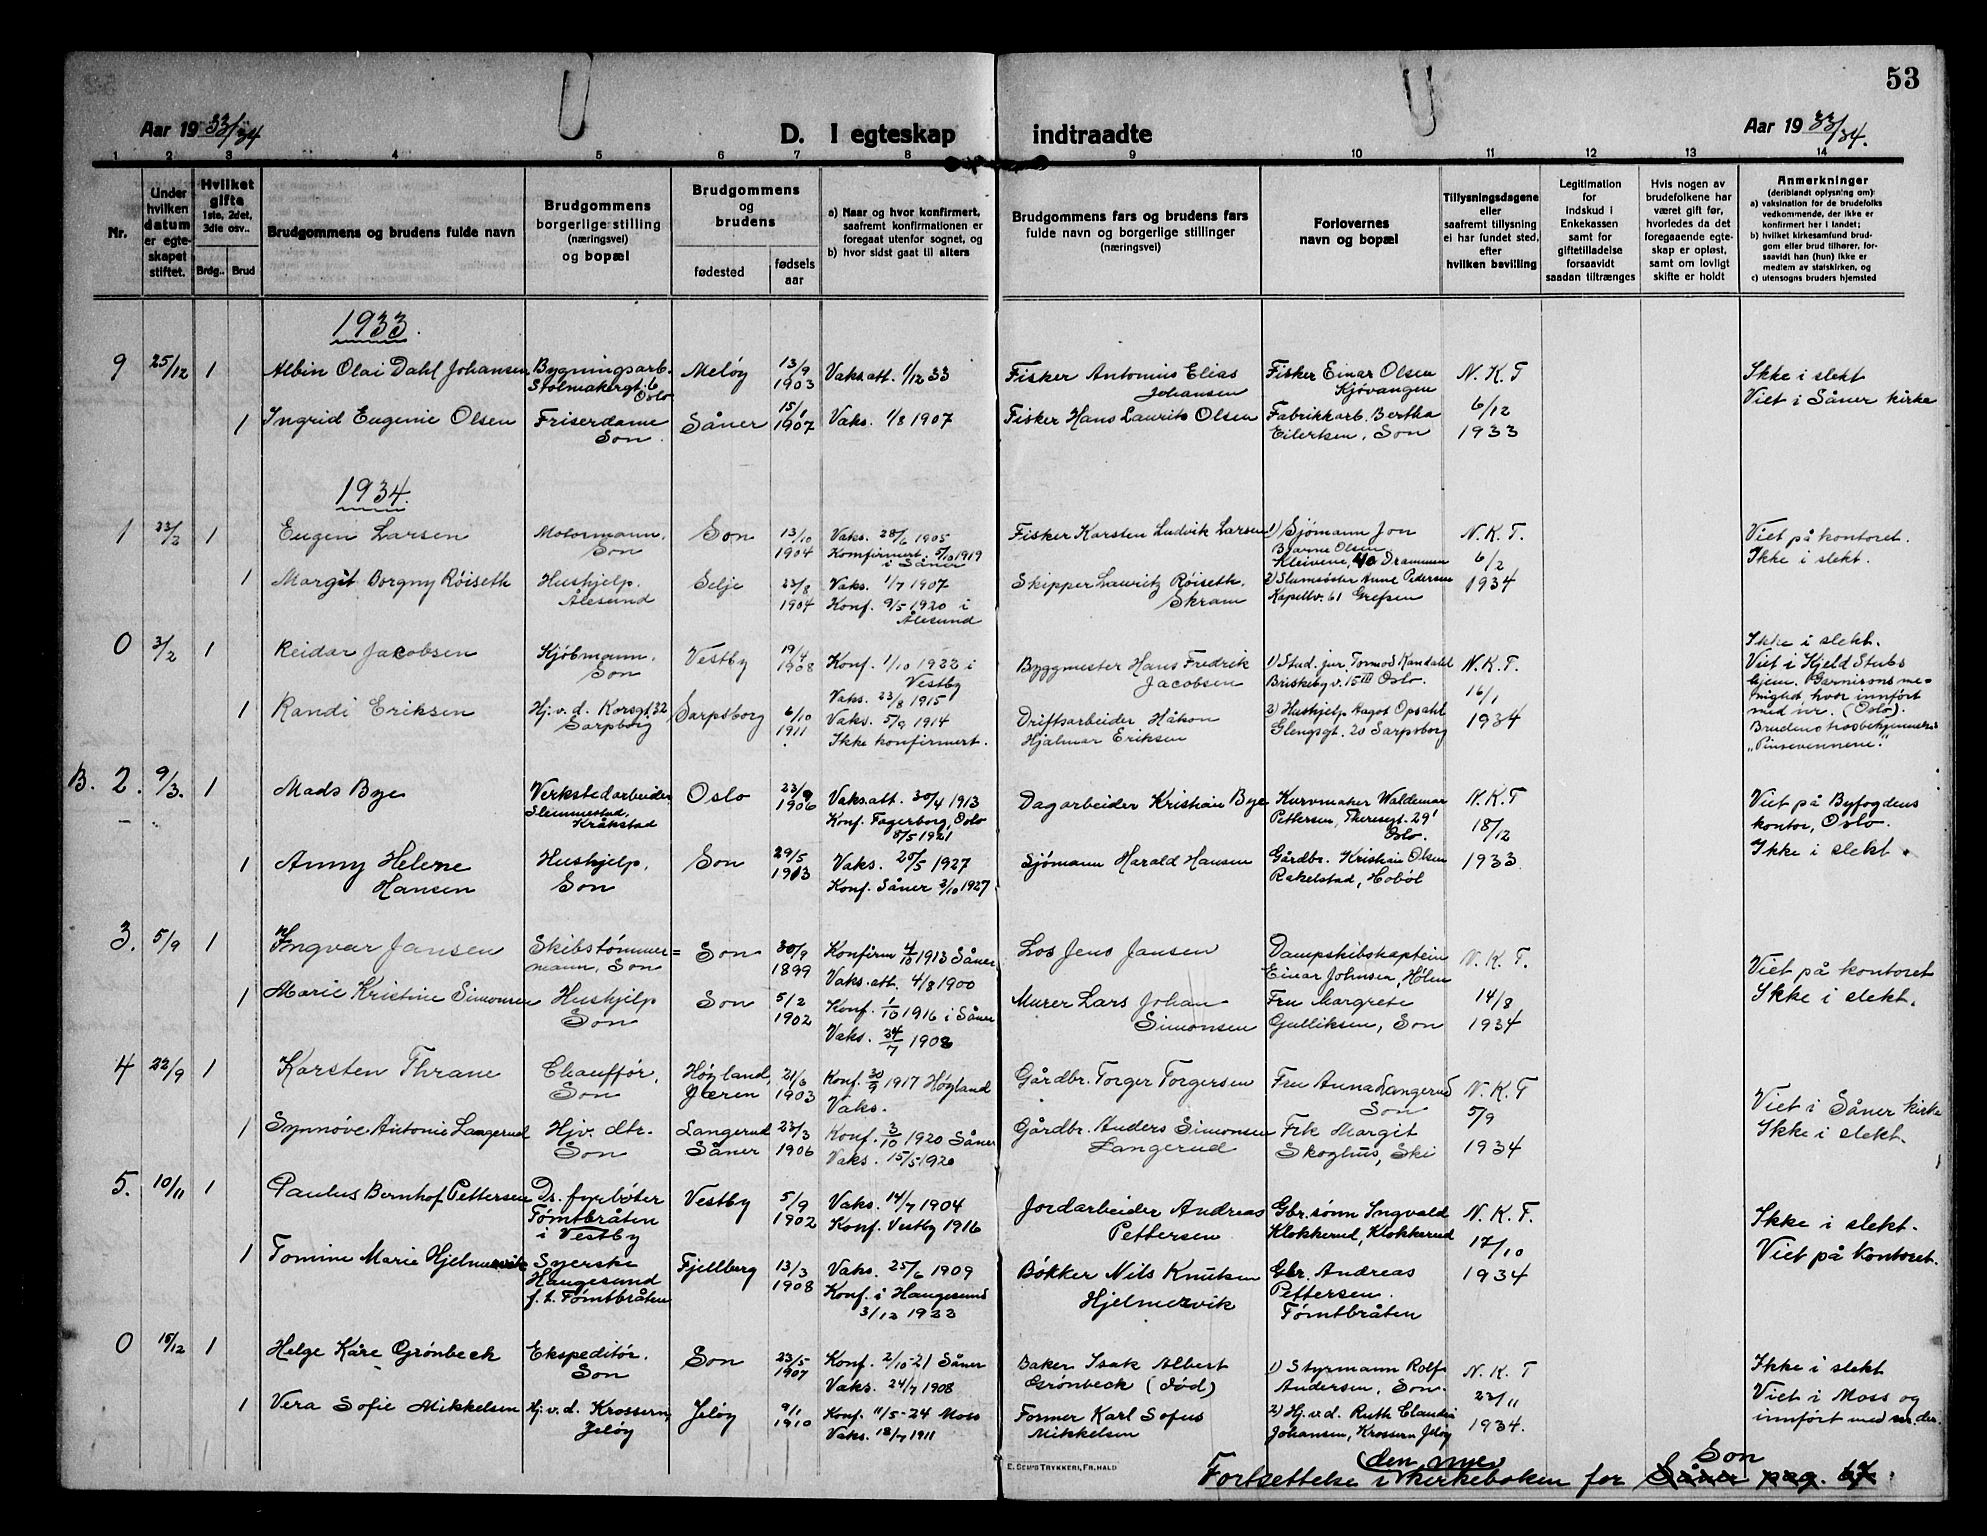 53
Aar 19 33/34
D. I egteskap indtraadte
Aar 19 33/34.
1 2 3 4 5 6 7 8 9 10 11 12 13 14
Nr.
Under hvilken datum er egteskapet stiftet.
Hvilket gifte 1ste, 2det, 3die osv..
Brdg.. Brud
Brudgommens og brudens fulde navn
Brudgommens borgerlige stilling (næringsvei) og bopæl
Brudgommens og brudens
fødested
fødselsaar
a) Naar og hvor konfirmert, saafremt konfirmationen er foregaat utenfor sognet, og
b) hvor sidst gaat til alters
Brudgommens fars og brudens fars fulde navn og borgerlige stillinger (næringsvei)
Forlovernes navn og bopæl
Tillysningsdagene eller saafremt tillysning ei har fundet sted, efter hvilken bevilling
Legitimation for Indskud i Enkekassen samt for giftetilladelse forsaavidt saadan tiltrænges
Hvis nogen av brudefolkene har været gift før, hvorledes da det foregaaende egteskap er opløst, samt om lovligt skifte er holdt
Anmerkninger
(deriblandt oplysning om)
a) vaksination for de brudefolks vedkommende, der ikke er konfirmert her i landet;
b) hvilket kirkesamfund brudgom eller brud tilhører, forsaavidt han (hun) ikke er medlem av statskirken, og
c) utensogns bruders hjemsted
1933.
9 25/12 1 Albin Olai Dahl Johansen Bygningsarb. Stolmakergt. 6 Oslo Meløy 13/9 1903 Vaks.att. 1/12 33 Fisker Antonius Elias Johansen Fisker Einar Olsen Kjøvangen N.K.T 6/12 1933 Ikke i slekt Viet i Såner kirke
1 Ingrid Eugenie Olsen Friserdame Son Såner 15/1 1907 Vaks. 1/8 1907 Fisker Hans Laurits Olsen Fabrikkarb. Bertha Eilertsen, Son
1934.
1 23/2 1 Eugen Larsen Motormann, Son Son 13/10 1904 Vaks. 28/6 1905 Komfirmert 5/10 1919 i Såner Fisker Karsten Ludvik Larsen 1) Sjømann Jon Bjarne Olsen Kleivene, 40 Drammen N.K.T. 6/2 1934 Viet på kontoret. Ikke i slekt.
1 Margit Borgny Røiseth Hushjelp. Ålesund Selje 23/8 1904 Vaks. 1/7 1907 Konf. 9/5 1920 i Ålesund Skipper Lauritz Røiseth, Skram 2) Slumsøster Anne Pedersen Kapellv. 61 Grefsen
0 3/2 1 Reidar Jacobsen Kjøbmann, Son Vestby 19/4 1908 Konf. 1/10 1922 i Vestby Vaks. 23/8 1915 Byggmester Hans Fredrik Jacobsen 1) Stud. jur Tormod Kandahl Briskebyv. 15 III Oslo. N.K.T. 16/1 1934 Ikke i slekt. Viet i Kjeld Stubs hjem. Garnisonsmenighet hvor innført med nr. (Oslo). Brudens trosbekjennelse "Pinsevennene."
1 Randi Eriksen Hj.v.d. Korsgt. 32 Sarpsborg Sarpsborg 6/10 1911 Vaks. 5/9 1914 Ikke konfirmert. Driftsarbeider Håkon Hjalmar Eriksen 2) Hushjelp Aagot Opsahl Glengsgt. 20 Sarpsborg
B. 2. 9/3. 1 Mads Bye Verkstedarbeider Slemmestad, Kråkstad Oslo 23/9 1906 Vaks.att. 30/4 1913 Konf. Fagerborg, Oslo 8/5 1921 Dagarbeider Kristian Bye Kurvmaker Waldemar Pettersen, Theresegt. 29 Oslo. N.K.T 18/12 1933 Viet på Byfogdens kontor, Oslo. Ikke i slekt.
1 Anny Helene Hansen Hushjelp, Son Son 29/5 1913 Vaks. 20/5 1927 Konf. Såner 2/10 1927 Sjømann Harald Hansen Gårdbr. Kristian Olsen Rakelstad, Hobøl
3. 5/9 1 Yngvar Jansen Skibstømmermann, Son Son 30/9 1899 Konfirm 4/10 1913 Såner Vaks.att. 4/8 1900 Los Jens Jansen Dampskibskaptein Einar Johnsen, Hølen N.K.T. 14/8 1934 Viet på kontoret Ikke i slekt.
1 Marie Kristine Simonsen Hushjelp Son Son 5/2 1902 Konf. 1/10 1916 i Såner Vaks. 24/7 1908 Murer Lars Johan Simonsen Fru Margrete Gulliksen, Son
4 22/9 1 Karsten Thrane Chauffør, Son Høyland, Jæren 21/6 1903 Konf. 30/9 1917 Høyland Vaks. Gårdbr. Torger Torgersen Fru Anna Langerud Son N.K.T 5/9 1934 Viet i Såner kirke Ikke i slekt.
1 Synnøve Antonie Langerud Hjv. dtr. Son Langerud Såner 23/3 1906 Konf. 3/10 1920 Såner Vaks. 15/5 1920 Gårdbr. Anders Simonsen Langerud Frk Margit Skoghus, Ski
5. 10/11 1 Paulus Bernhof Pettersen Ds. fyrbøter Tømtbråten i Vestby Vestby 5/9 1902 Vaks. 14/7 1904 Konf. Vestby 1916 Jordarbeider Andreas Pettersen Gbr.sønn Ingvald Klokkerud, Klokkerud N.K.T. 17/10 1934 Ikke i slekt. Viet på kontoret.
1 Tomine Marie Hjelmervik Syerske Haugesund f.t. Tømtbråten Fjellberg 13/3 1908 Vaks. 25/6 1909 Konf. i Haugesund 3/12 1922 Bøkker Nils Knutsen Hjelmervik Gbr. Andreas Pettersen. Tømtbråten
0 15/12 1 Helge Kåre Grønbeck Ekspeditør. Son Son 23/5 1907 Konf. 2/10-21 Såner Vaks. 24/7 1908 Baker Isak Albert Grønbeck (død) 1) Styrmann Rolf Andersen, Son. N.K.T 22/11 1934. Ikke i slekt Viet i Moss og innført med nr. der.
1 Vera Sofie Mikkelsen Hj.v.d. Krossern, Jeløy Jeløy 9/1 1910 Konf. 11/5-24 Moss Vaks. 18/7 1911 Former Karl Sofus Mikkelsen 2) Hj.v.d. Ruth Claudia Johansen, Krossern Jeløy
E. SEM'S TRYKKERI, FR.HALD
Fortsettelse i (den nye) kirkeboken for Son Såner pag. 67.